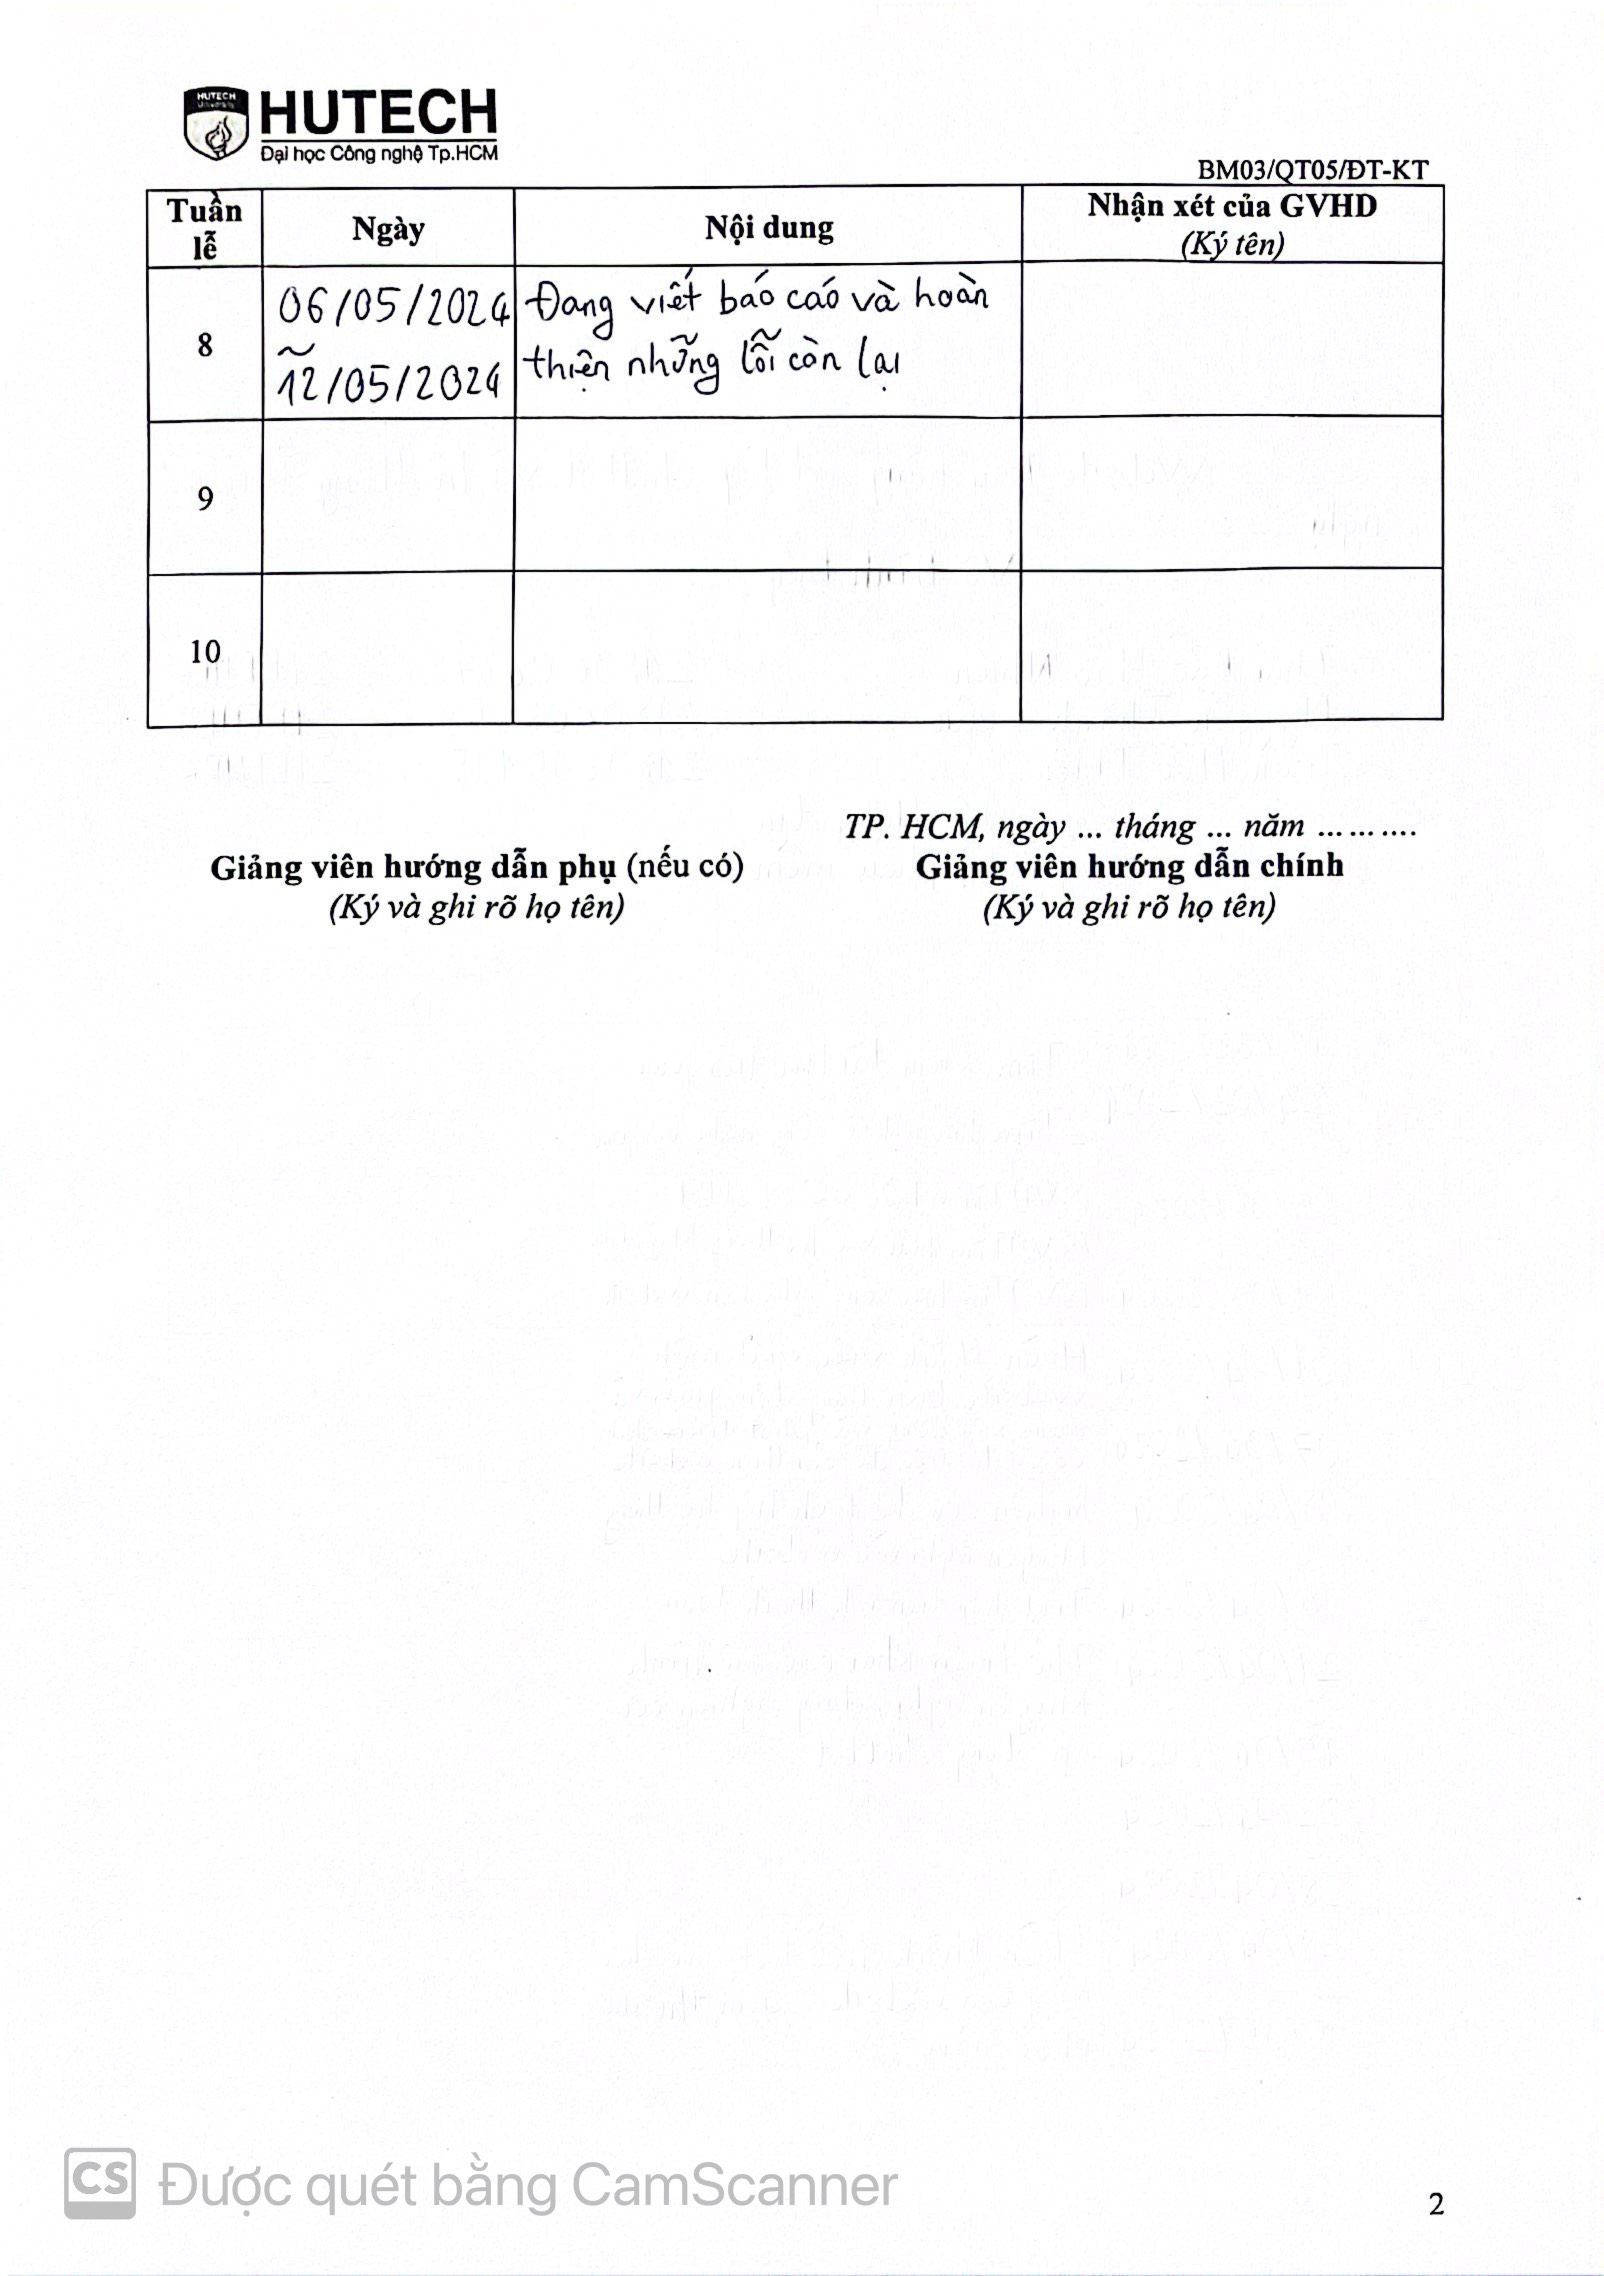 HUTECH
University
HUTECH
Đại học Công nghệ Tp.HCM
BM03/QT05/ĐT-KT
Tuần lễ
Ngày
Nội dung
Nhận xét của GVHD
(Ký tên)
8
06/05/2024
~
12/05/2024
Đang viết báo cáo và hoàn
thiện những lỗi còn lại
9
10
TP. HCM, ngày ... tháng ... năm ..........
Giảng viên hướng dẫn phụ (nếu có)
(Ký và ghi rõ họ tên)
Giảng viên hướng dẫn chính
(Ký và ghi rõ họ tên)
CS Được quét bằng CamScanner
2